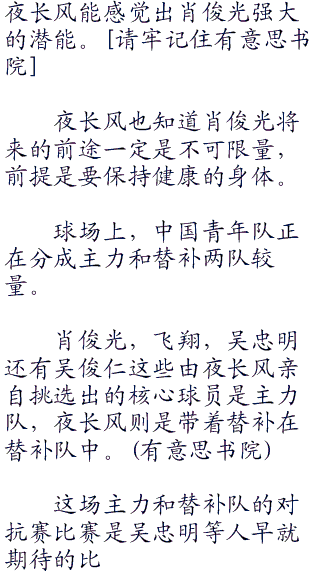 夜长风能感觉出肖俊光强大
的潜能。[请牢记住有意思书
院]
夜长风也知道肖俊光将
来的前途一定是不可限量，
前提是要保持健康的身体。
球场上，中国青年队正
在分成主力和替补两队较
量。
肖俊光，飞翔，吴忠明
还有吴俊仁这些由夜长风亲
自挑选出的核心球员是主力
队，夜长风则是带着替补在
替补队中。(有意思书院)
这场主力和替补队的对
抗赛比赛是吴忠明等人早就
期待的比